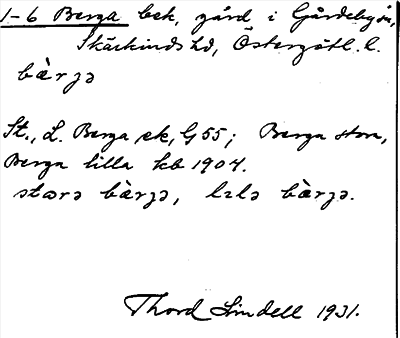 1-6 Berga bek, gård i Gårdeby sn,
Skärkinds hd, Östergötl. l.
bèrgə
St., L. Berga ek, G 55; Berga stora,
Berga lilla kb 1904.
stœrə bèrgə, lɩlə bèrgə.
Thord Lindell 1931.